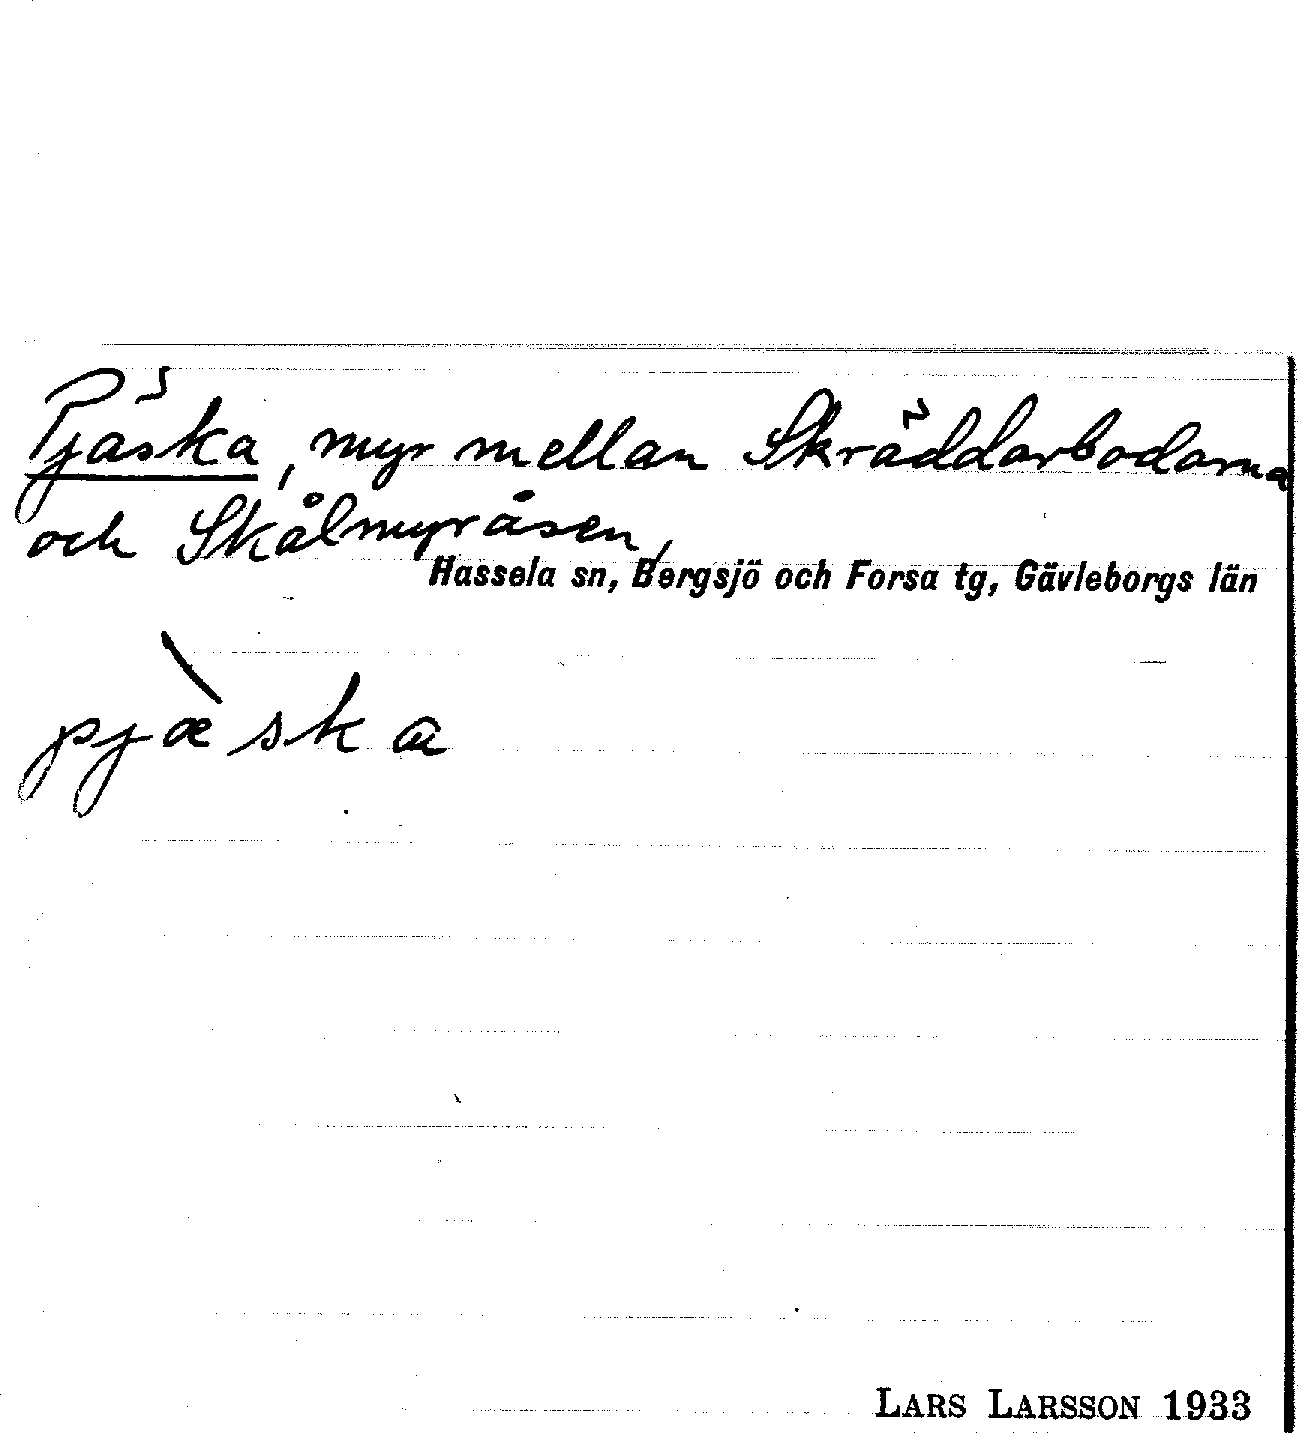 Pjäska, myr mellan Skräddarbodarna
och Skålmyråsen,
Hassela sn, Bergsjö och Forsa tg, Gävleborgs län
pjæ̀ska
LARS LARSSON 1933